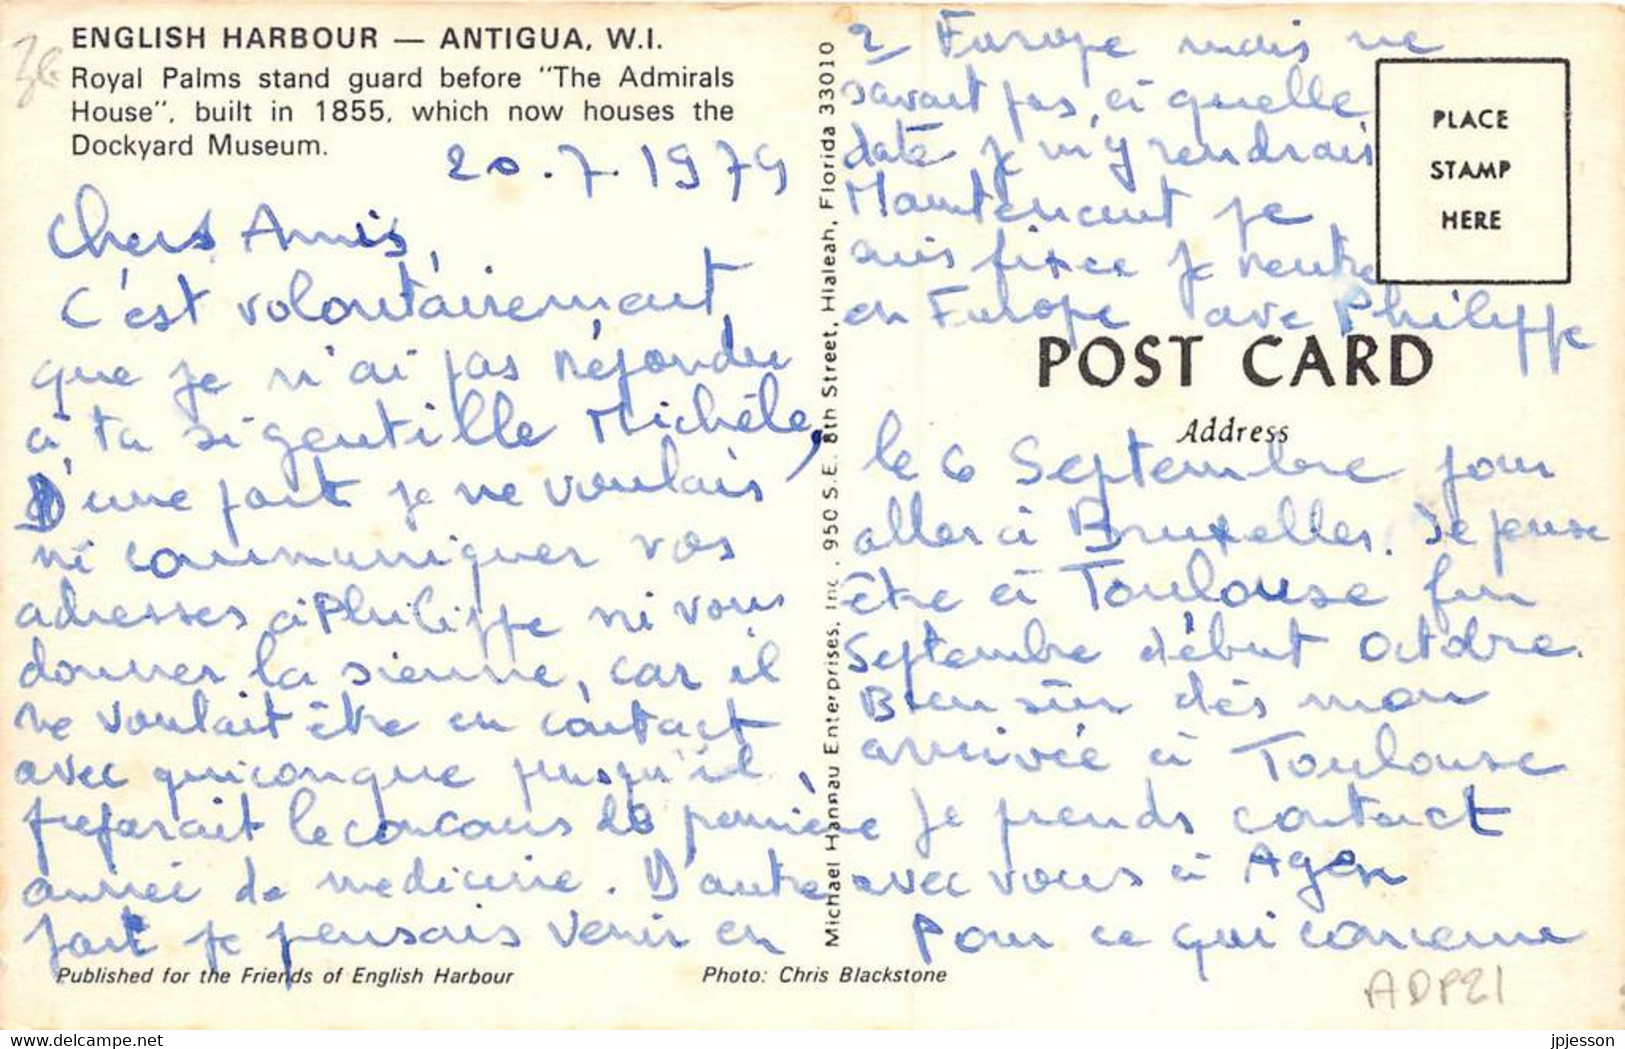 ENGLISH HARBOUR — ANTIGUA, W.I.
Royal Palms stand guard before "The Admirals
House", built in 1855, which now houses the
Dockyard Museum.
20.7.1979
Chers Amis,
C'est volontairement
que je n'ai pas répondu
à ta si gentille Michèle,
D'une part je ne voulais
ni communiquer vos
adresses à Philippe ni vous
donner la sienne, car il
ne voulait être en contact
avec quiconque jusqu'il
preparait le concours de première
année de medicine. D'autre
part je pensais venir en
Published for the Friends of English Harbour
Photo: Chris Blackstone
Michael Hannau Enterprises, Inc., 950 S.E. 8th Street, Hialeah, Florida 33010
2 Europe mais ne
savait pas, à quelle
date je m'y rendrais
Maintenant je
suis fixée je rentre
en Europe avec Philippe
PLACE
STAMP
HERE
POST CARD
Address
le 6 Septembre pour
aller à Bruxelles. Je pense
être à Toulouse fin
Septembre début Octobre.
Bien sûr dès mon
arrivée à Toulouse
je prends contact
avec vous à Agen
Pour ce qui concerne
ADP21
delcampe.net
jpjesson